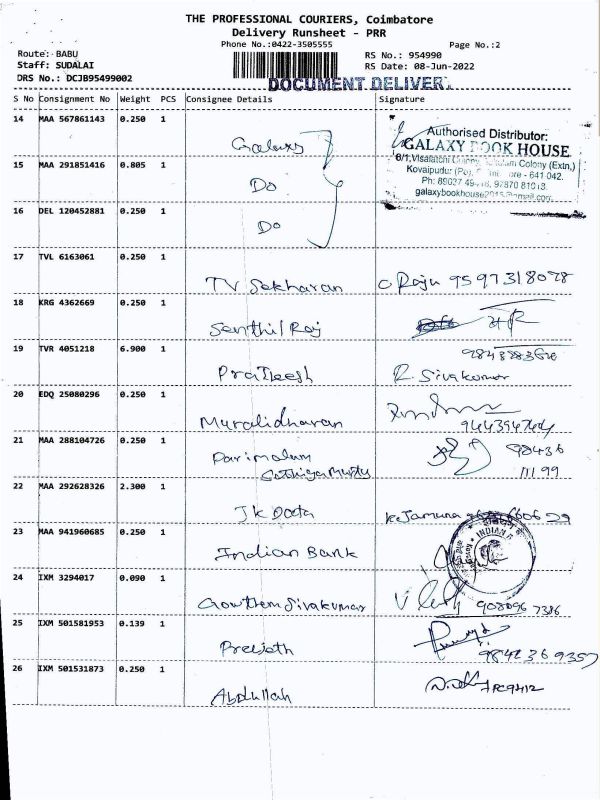 THE PROFESSIONAL COURIERS, Coimbatore
Delivery Runsheet - PRR
Phone No.:0422-3505555 Page No.:2
Route: BABU RS No.: 954990
Staff: SUDALAI RS Date: 08-Jun-2022
DRS No.: DCJB95499002
DOCUMENT DELIVER
S No Consignment No Weight PCS Consignee Details Signature
14 MAA 567861143 0.250 1 Galaxy
Authorised Distributor:
GALAXY BOOK HOUSE
Colony (Extn.)
Kovaipudur 641 042.
15 MAA 291851416 0.805 1 Do
16 DEL 120452881 0.250 1 Do
17 TVL 6163061 0.250 1 TV Sekharan C Raju 9597318078
18 KRG 4362669 0.250 1 Senthil Raj
19 TVR 4051218 6.900 1 Pratleesh R. Sivakumar
20 EDQ 25080296 0.250 1 Muralidharan
21 MAA 288104726 0.250 1 Parimalam 98436
11199
22 MAA 292628326 2.300 1 JK Data K. Jamuna
23 MAA 941960685 0.250 1 Indian Bank
INDIAN
24 IXM 3294017 0.090 1 Gowthem Sivakumar
25 IXM 501581953 0.139 1 Preejath
26 IXM 501531873 0.250 1 Abdullah